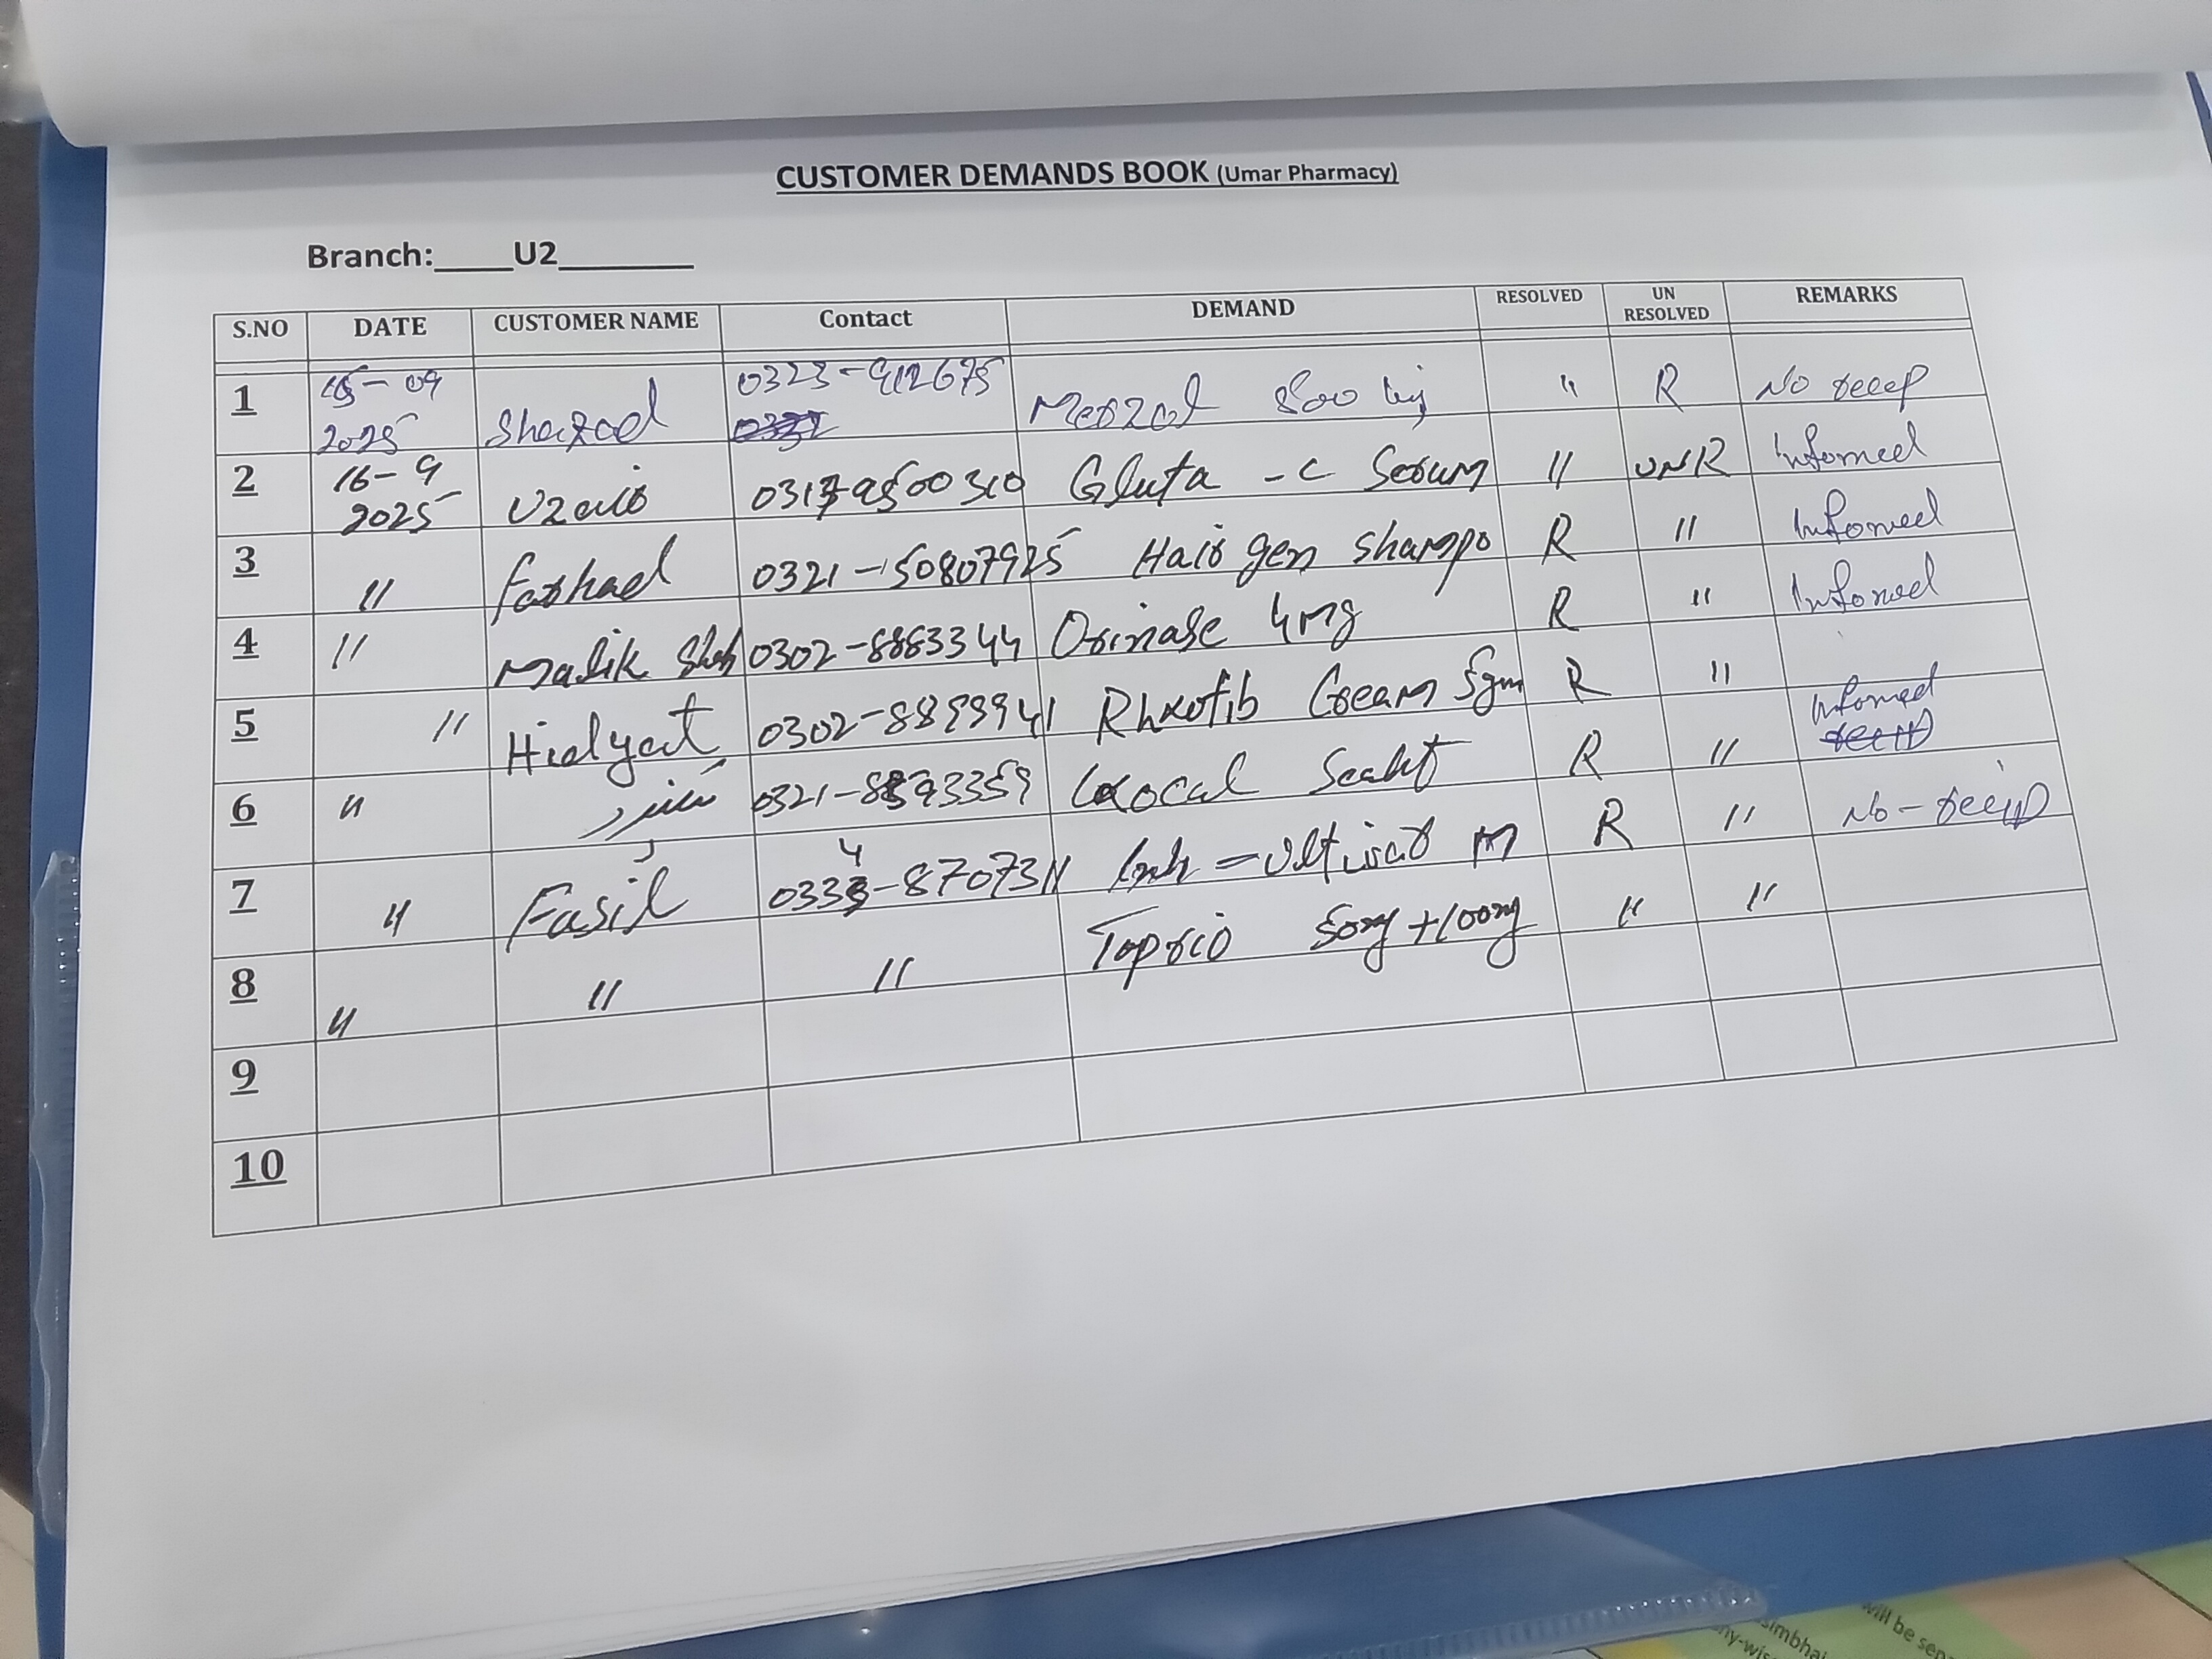 CUSTOMER DEMANDS BOOK (Umar Pharmacy)
Branch:____U2_______
S.NO DATE CUSTOMER NAME Contact DEMAND RESOLVED UN RESOLVED REMARKS
1 15-09 2025 Shazad 0323-9112675 800 " R No
2 16-9 2025 Uzair 0317-9500310 Gluta-C Serum " UNR Informed
3 " Farhad 0321-50807925 Hair gen shampo R " Informed
4 " Malik Shah 0302-8883344 Orinase 4mg R " Informed
5 " Hidyat 0302-8899941 Cream 5gm R "
6 " 0321-8893359 R " Informed
7 " Fasil 0334-8707311 R " No-
8 " " " Topcio 50mg+100mg " "
9
10
will be